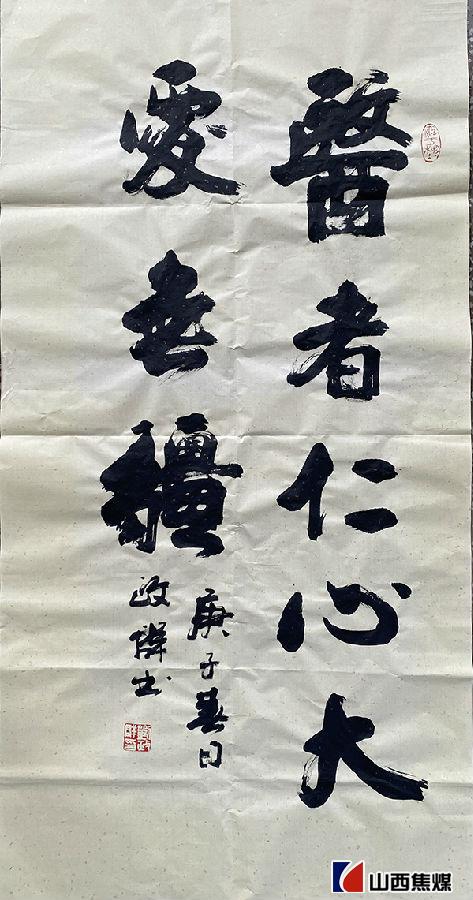 醫者仁心大
愛無疆
庚子春日
政
書
山西焦煤